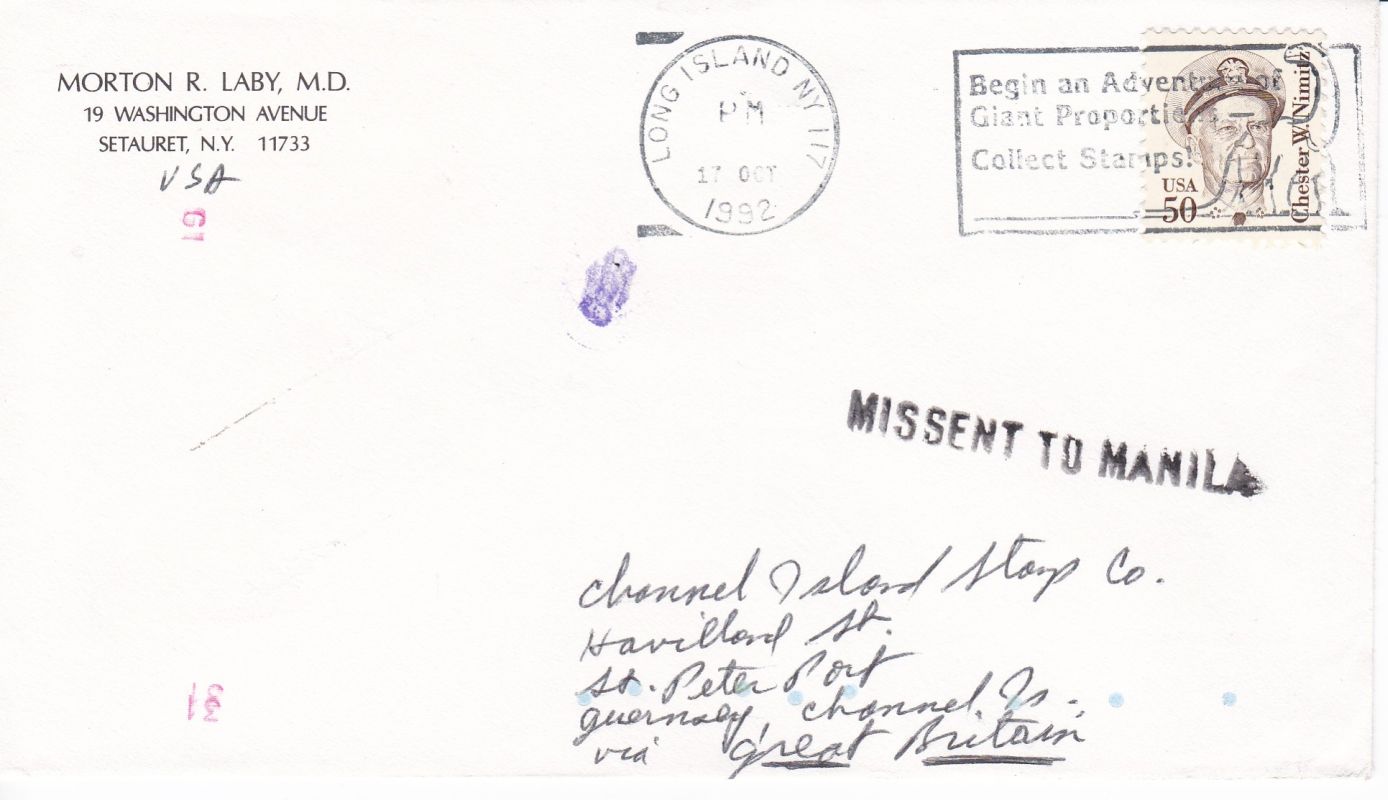 MORTON R. LABY, M.D.
19 WASHINGTON AVENUE
SETAURET, N.Y. 11733
USA
G1
LONG ISLAND NY 117
PM
17 OCT
1992
Begin an Adventure of
Giant Proportions –
Collect Stamps!
USA
50
Chester W. Nimitz
MISSENT TO MANILA
Channel Island Stamp Co.
Havilland St.
St. Peter Port
Guernsey, Channel Is.,
via Great Britain
31